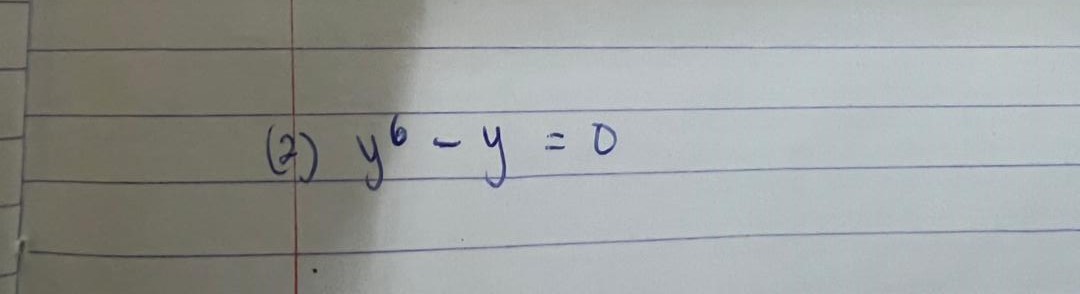 (2) y⁶ - y = 0